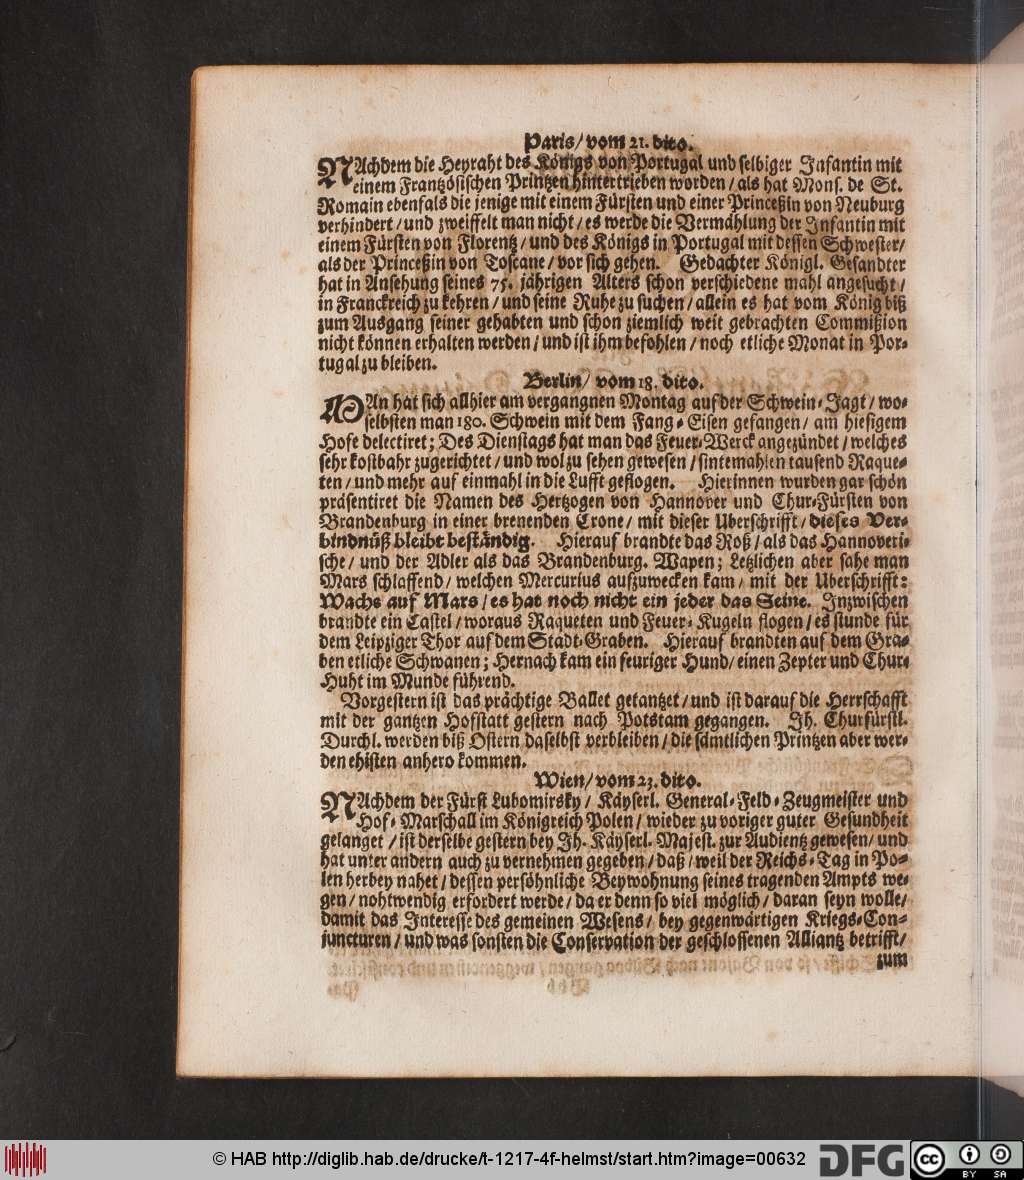 Paris/ vom 21. dito.
NAchdem die Heyraht des Königs von Portugal und selbiger Infantin mit
einem Frantzösischen Printzen hintertrieben worden / als hat Mons. de St.
Romain ebenfals die jenige mit einem Fürsten und einer Princeßin von Neuburg
verhindert / und zweiffelt man nicht / es werde die Vermählung der Infantin mit
einem Fürsten von Florentz / und des Königs in Portugal mit dessen Schwester/
als der Princeßin von Toscane / vor sich gehen. Gedachter Königl. Gesandter
hat in Ansehung seines 75. jährigen Alters schon verschiedene mahl angesucht /
in Franckreich zu kehren / und seine Ruhe zu suchen / allein es hat vom König biß
zum Ausgang seiner gehabten und schon ziemlich weit gebrachten Commißion
nicht können erhalten werden / und ist ihm befohlen / noch etliche Monat in Por-
tugal zu bleiben.
Berlin/ vom 18. dito.
MAn hat sich allhier am vergangnen Montag auf der Schwein-Jagt / wo-
selbsten man 180. Schwein mit dem Fang-Eisen gefangen / am hiesigem
Hofe delectiret; Des Dienstags hat man das Feuer-Werck angezündet / welches
sehr kostbahr zugerichtet / und wol zu sehen gewesen / sintemahlen tausend Raque-
ten / und mehr auf einmahl in die Lufft geflogen. Hierinnen wurden gar schön
präsentiret die Namen des Hertzogen von Hannover und Chur-Fürsten von
Brandenburg in einer brenenden Crone / mit dieser Uberschrifft / dieses Ver-
bindnüß bleibt beständig. Hierauf brandte das Roß / als das Hannoveri-
sche / und der Adler als das Brandenburg. Wapen; Letzlichen aber sahe man
Mars schlaffend / welchen Mercurius aufzuwecken kam / mit der Uberschrifft:
Wache auf Mars / es hat noch nicht ein jeder das Seine. Inzwischen
brandte ein Castel / woraus Raqueten und Feuer-Kugeln flogen / es stunde für
dem Leipziger Thor auf dem Stadt-Graben. Hierauf brandten auf dem Gra-
ben etliche Schwanen; Hernach kam ein feuriger Hund / einen Zepter und Chur-
Huht im Munde führend.
Vorgestern ist das prächtige Ballet getantzet / und ist darauf die Herrschafft
mit der gantzen Hofstatt gestern nach Potstam gegangen. Ih. Churfürstl.
Durchl. werden biß Ostern daselbst verbleiben / die sämtlichen Printzen aber wer-
den ehisten anhero kommen.
Wien/ vom 23. dito.
NAchdem der Fürst Lubomirsky / Käyserl. General-Feld-Zeugmeister und
Hof-Marschall im Königreich Polen / wieder zu voriger guter Gesundheit
gelanget / ist derselbe gestern bey Ih. Käyserl. Majest. zur Audientz gewesen / und
hat unter andern auch zu vernehmen gegeben / daß / weil der Reichs-Tag in Po-
len herbey nahet / dessen persöhnliche Beywohnung seines tragenden Ampts we-
gen / nohtwendig erfordert werde / da er denn so viel möglich / daran seyn wolle/
damit das Interesse des gemeinen Wesens / bey gegenwärtigen Kriegs-Con-
juncturen / und was sonsten die Conservation der geschlossenen Alliantz betrifft/
zum
© HAB http://diglib.hab.de/drucke/t-1217-4f-helmst/start.htm?image=00632
DFG
cc BY SA